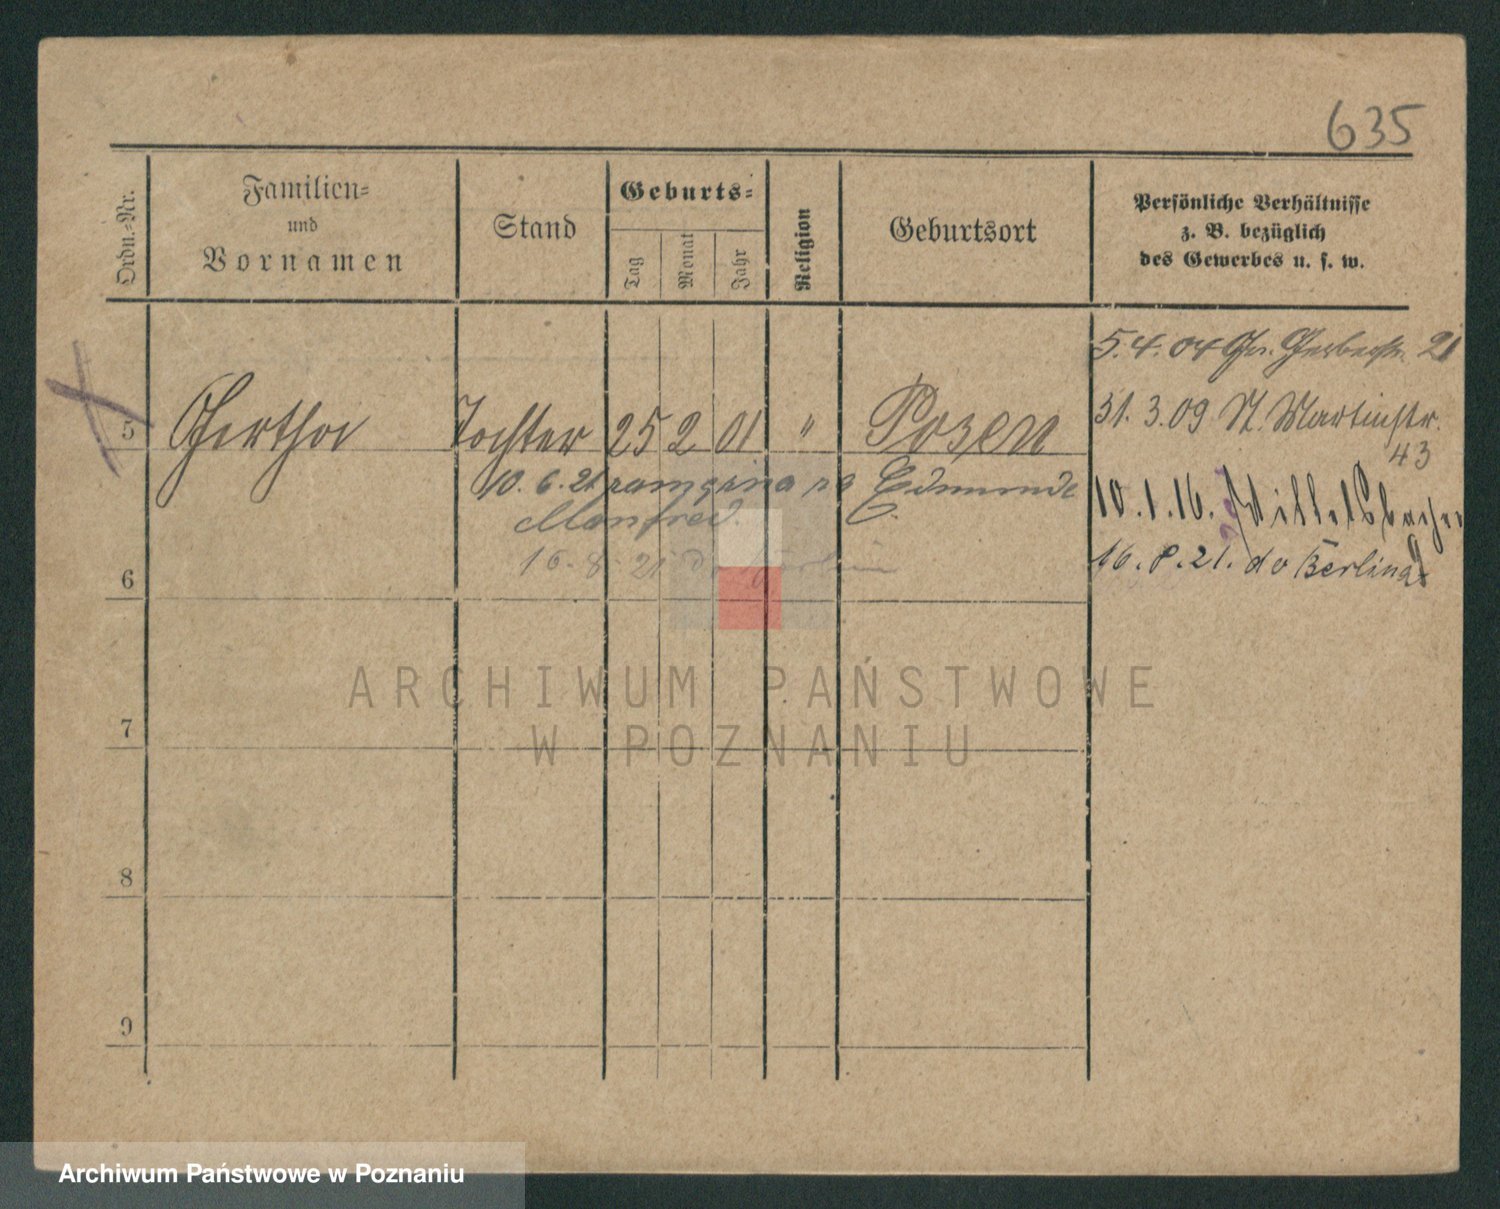 635
Ordn.-Nr.
Familien-
und
Vornamen
Stand
Geburts-
Tag
Monat
Jahr
Religion
Geburtsort
Persönliche Verhältnisse
z. B. bezüglich
des Gewerbes u. s. w.
5.4.04 Gr. Gerberstr. 21
5 Gertha Tochter 25 2 01 " Posen
31.3.09 St. Martinstr.
43
10.6.21 zamężna za Edmunde
Manfred
10.1.16.
16.8.21 do Berlina
16.8.21. do Berlina
6
7
8
9
ARCHIWUM PAŃSTWOWE
W POZNANIU
Archiwum Państwowe w Poznaniu